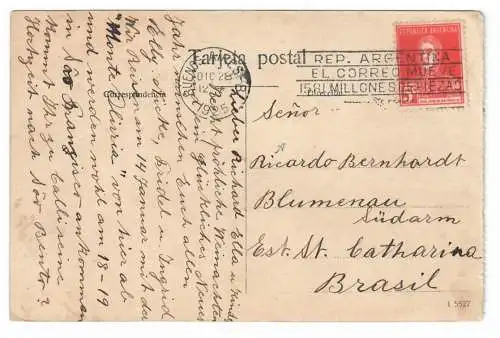 Tarjeta postal
Correspondencia
REPUBLICA ARGENTINA
BUENOS AIRES
DIC 28
12
REP. ARGENTINA
EL CORREO MUEVE
1581 MILLONES DE PIEZAS
5
Señor
Ricardo Bernhardt
Blumenau
Südarm
Est. St. Catharina
Brasil
1 5527
Lieber Richard Ella u Kinder
Recht fröhliche Weihnachten
ein glückliches Neues
Jahr wünschen Euch allen
Elly Lücke, Fridel u. Ingrid
Wir Reisen am 14 Januar mit der
"Monte Olivia" von hier ab
und werden wohl am 18-19
in São Franzisco ankommen
Kommt Ihr zu Callisens
Hochzeit nach São Bento?